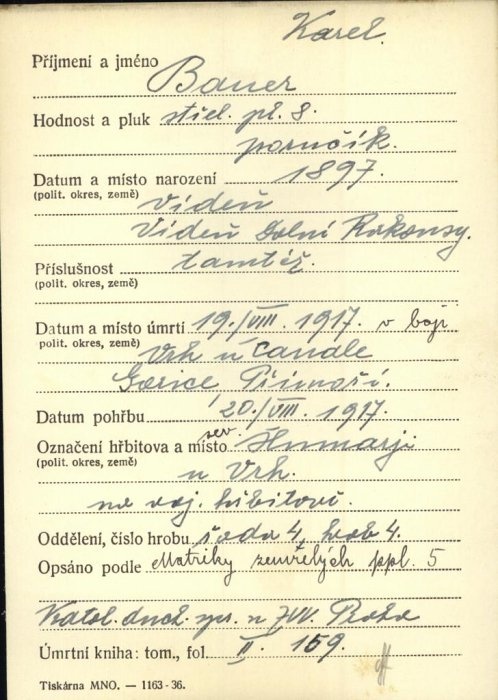 Karel.
Příjmení a jméno Bauer
Hodnost a pluk střel. pl. 8.
poručík.
Datum a místo narození 1897.
(polit. okres, země) Vídeň
Vídeň Dolní Rakousy.
Příslušnost tamtéž.
(polit. okres, země)
Datum a místo úmrtí 19./VIII. 1917. v boji
polit. okres, země) Vrh u Canale
Gorice Přímoří.
Datum pohřbu 20./VIII. 1917.
Označení hřbitova a místo sev Humarji
(polit. okres, země) u Vrh.
na voj. hřbitově.
Oddělení, číslo hrobu řada 4, hrob 4.
Opsáno podle Matriky zemřelých ppl. 5
Katol. duch. spr. u ZVV. Praha
Úmrtní kniha: tom., fol. II. 159.
Tiskárna MNO. — 1163-36.